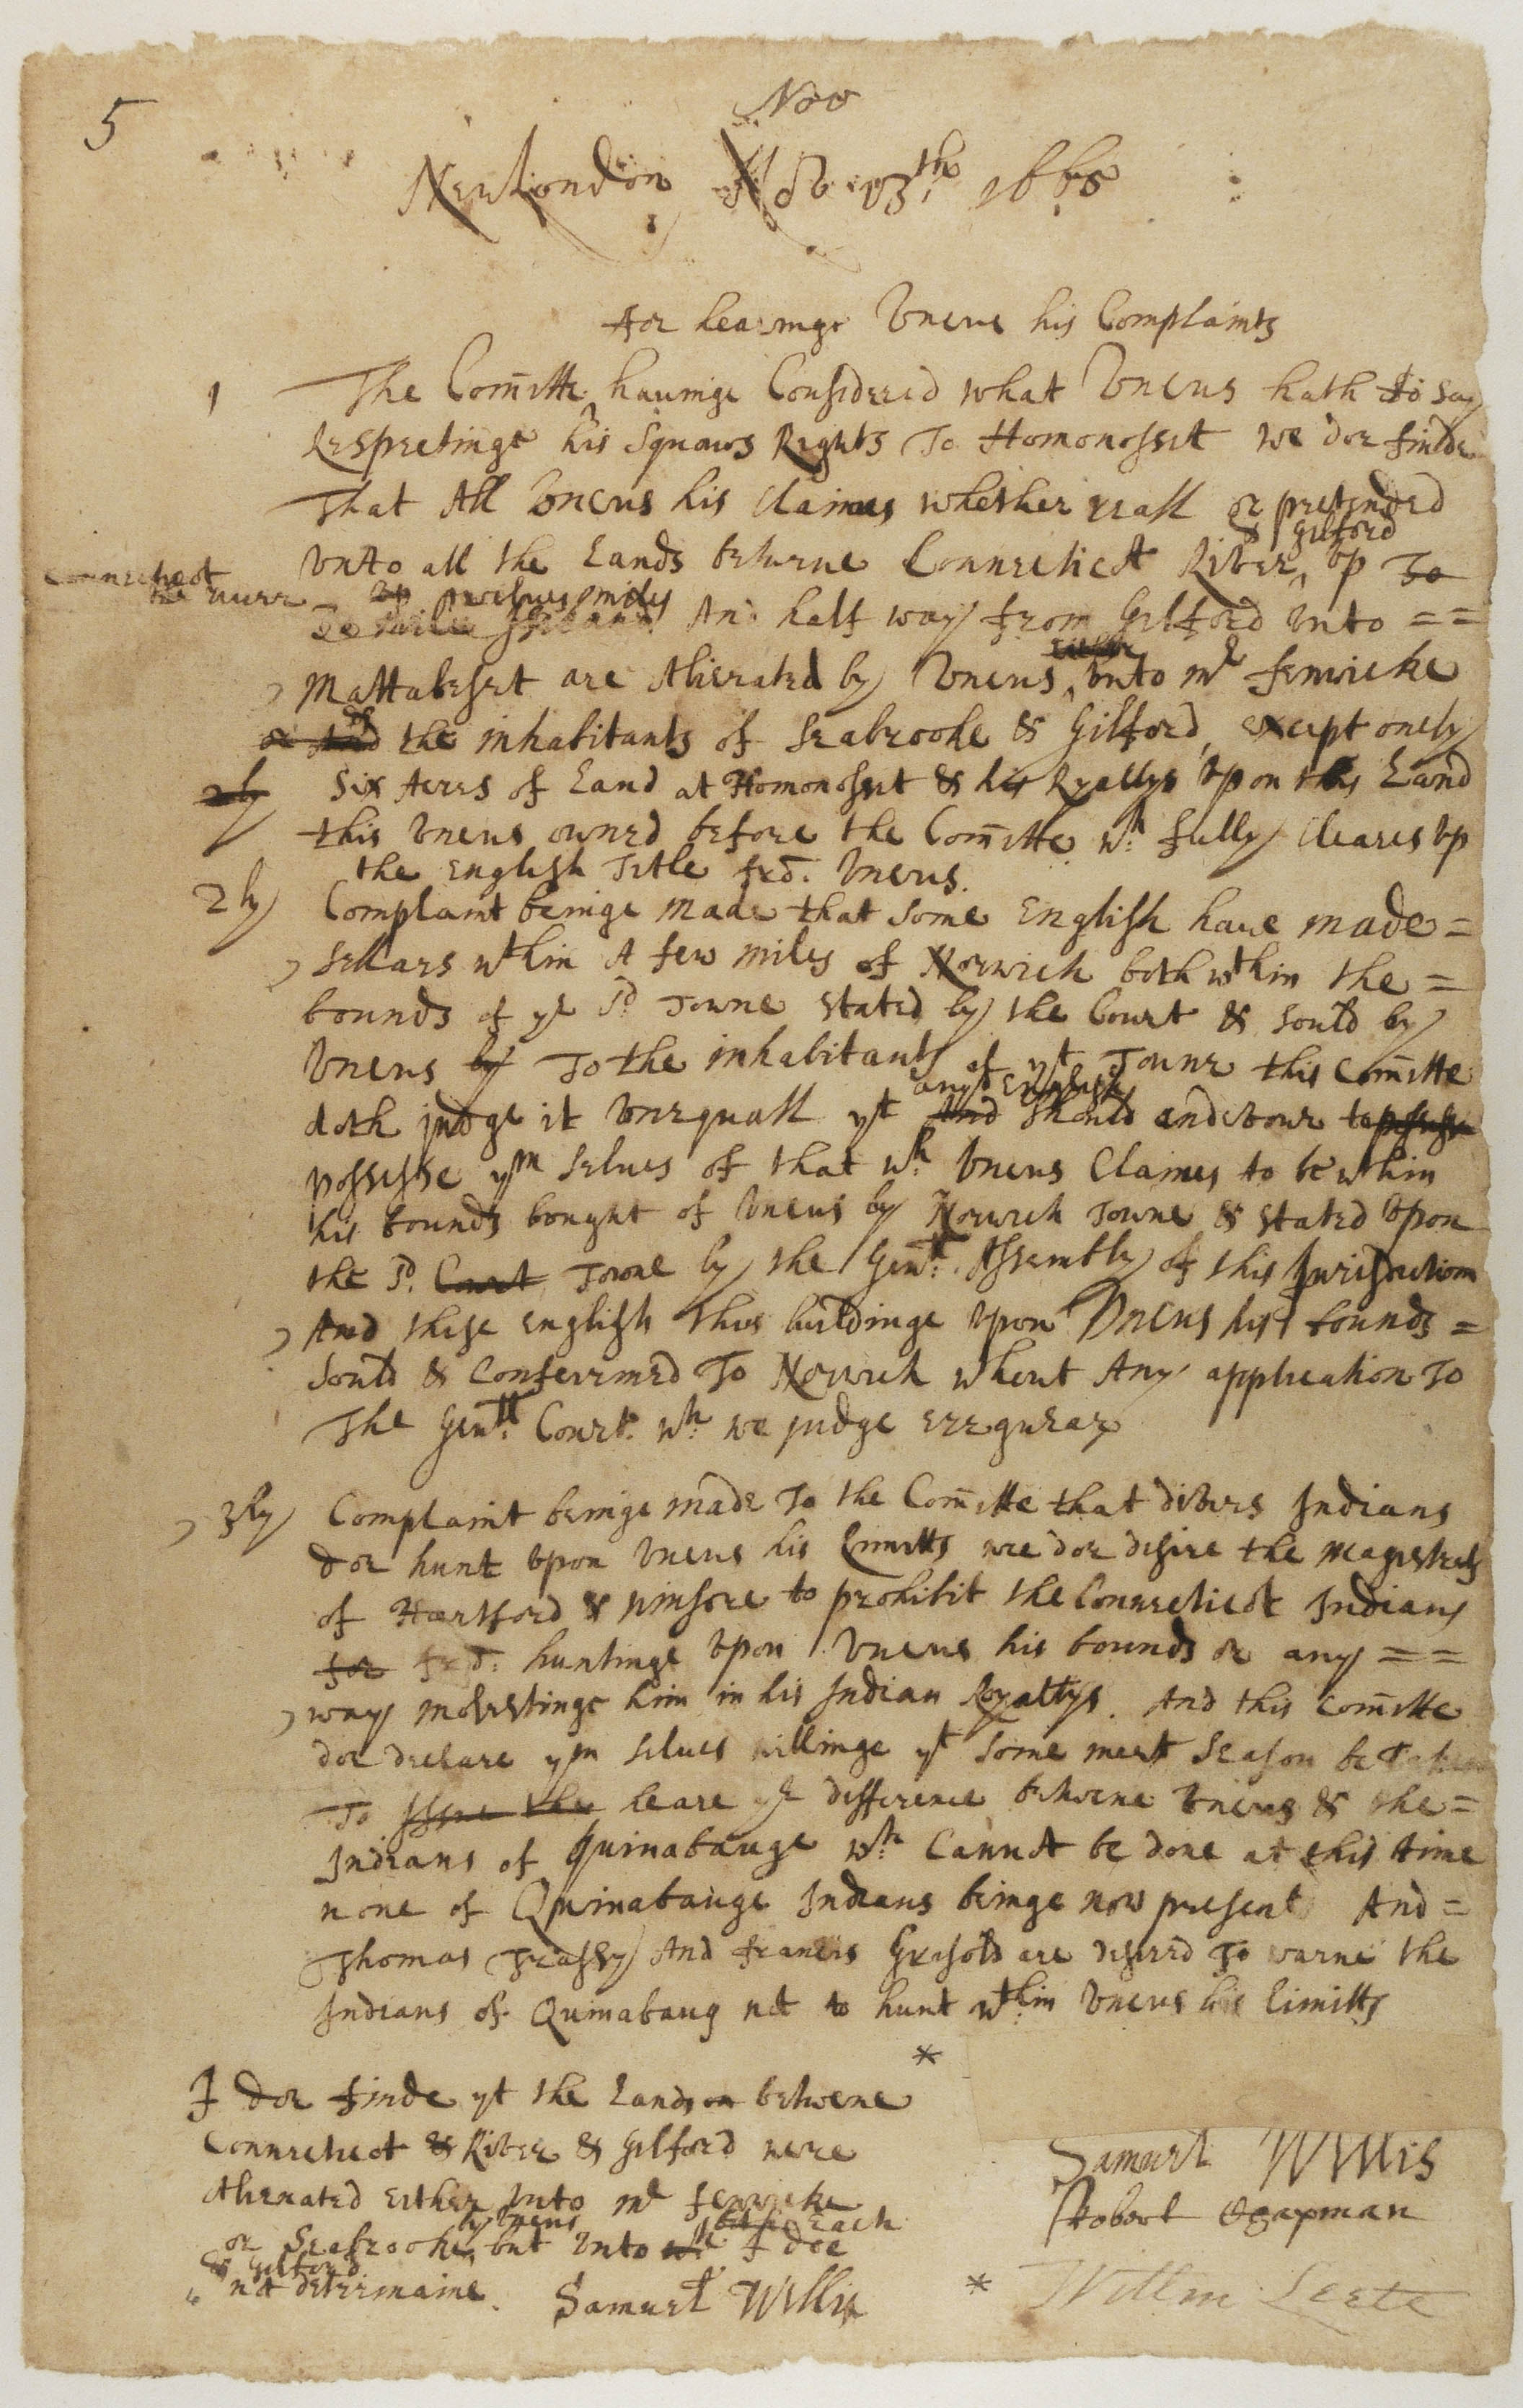 5
Nov
New London 13th 1665
For hearinge Uncus his Complaints
1 The Com̄itte havinge Considered what Uncus hath to say
Respectinge his Squaws Rights To Homonosset we doe finde
That All Uncus his Claimes whether reall or pretended
& Gilford
unto all the Lands betwene Connecticot River up To
Connecticot
the river up twelve miles
And half way from Gilford unto ==
Mattabeset are Alienated by Uncus either unto mr Fenwicke
or the inhabitants of Seabrooke & Gilford, except onely
2ly Six Acres of Land at Homonosset & his Ryallys upon this Land
this Uncus owned before the Com̄itte wh fully Cleares up
the English Title frō. Uncus.
2ly Complaint beinge made that some English have made =
Sellars wthin A few miles of Norwich both wthin the =
bounds of ye sd Towne stated by the Court & sould by
Uncus by To the inhabitants of yt Towne this Com̄itte
any English
doth judge it unequall yt And should andevour to possesse
possesse ym selves of that wh Uncus Claimes to be wthin
his bounds bought of Uncus by Norwich Towne & stated upon
the sd. Court Towne by the Genll. Assembly of this Jurisdiction
And these English thus buildinge upon Uncus his bounds =
sould & Conferrmed To Norwich wthout Any application To
The Genll. Court. wh we judge erregular
3ly Complaint beinge made To the Com̄itte that divers Indians
doe hunt upon Uncus his Limitts wee doe desire the Magistrats
of Hartford & winsore to prohibit the Connecticot Indians
for frō: huntinge upon Uncus his bounds or any ==
way molestinge him in his Indian Royaltys. And this Com̄itte
doe declare ym selves willinge yt some meet season be taken
To Issue the heare ye difference betwene Uncus & the =
Indians of Quinabauge wh Cannot be done at this time
none of Quinabauge Indians beinge now present And =
Thomas Trassy And Francis Grasold are desired To warne the
Indians of Quinabaug not to hunt wthin Uncus his limitts
*
I doe finde yt the Lands on betwene
Connecticot & River & Gilford were
Alienated either unto mr Fenwicke
by Uncus Each
or Seabrooke, but unto wh I doe
& Gilford
not deterrmaine. Samuel Willis
Samuel Willis
Robert Chapman
* Willm Leete